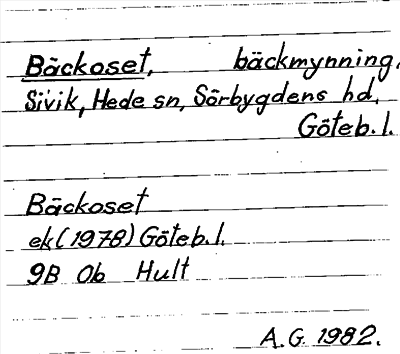 Bäckoset, bäckmynning.
Sivik, Hede sn, Sörbygdens hd,
Göteb.l.
Bäckoset
ek (1978) Göteb.l.
9B 0b Hult
A.G. 1982.